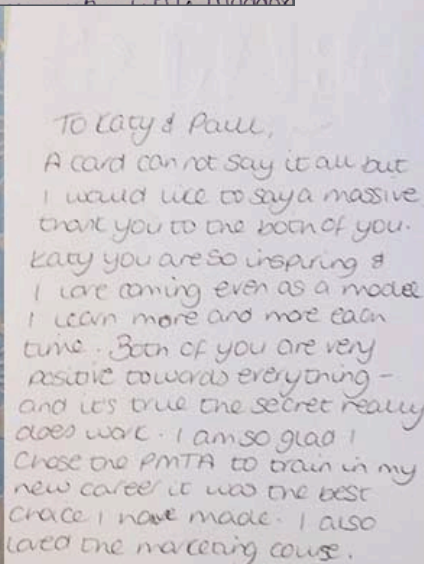 To Katy & Paul,
A card can not say it all but
I would like to say a massive
thank you to the both of you.
Katy you are so inspiring &
I love coming even as a model
I learn more and more each
time. Both of you are very
positive towards everything -
and it's true the secret really
does work. I am so glad I
Chose the PMTA to train in my
new career it was the best
choice I have made. I also
loved the marketing course.